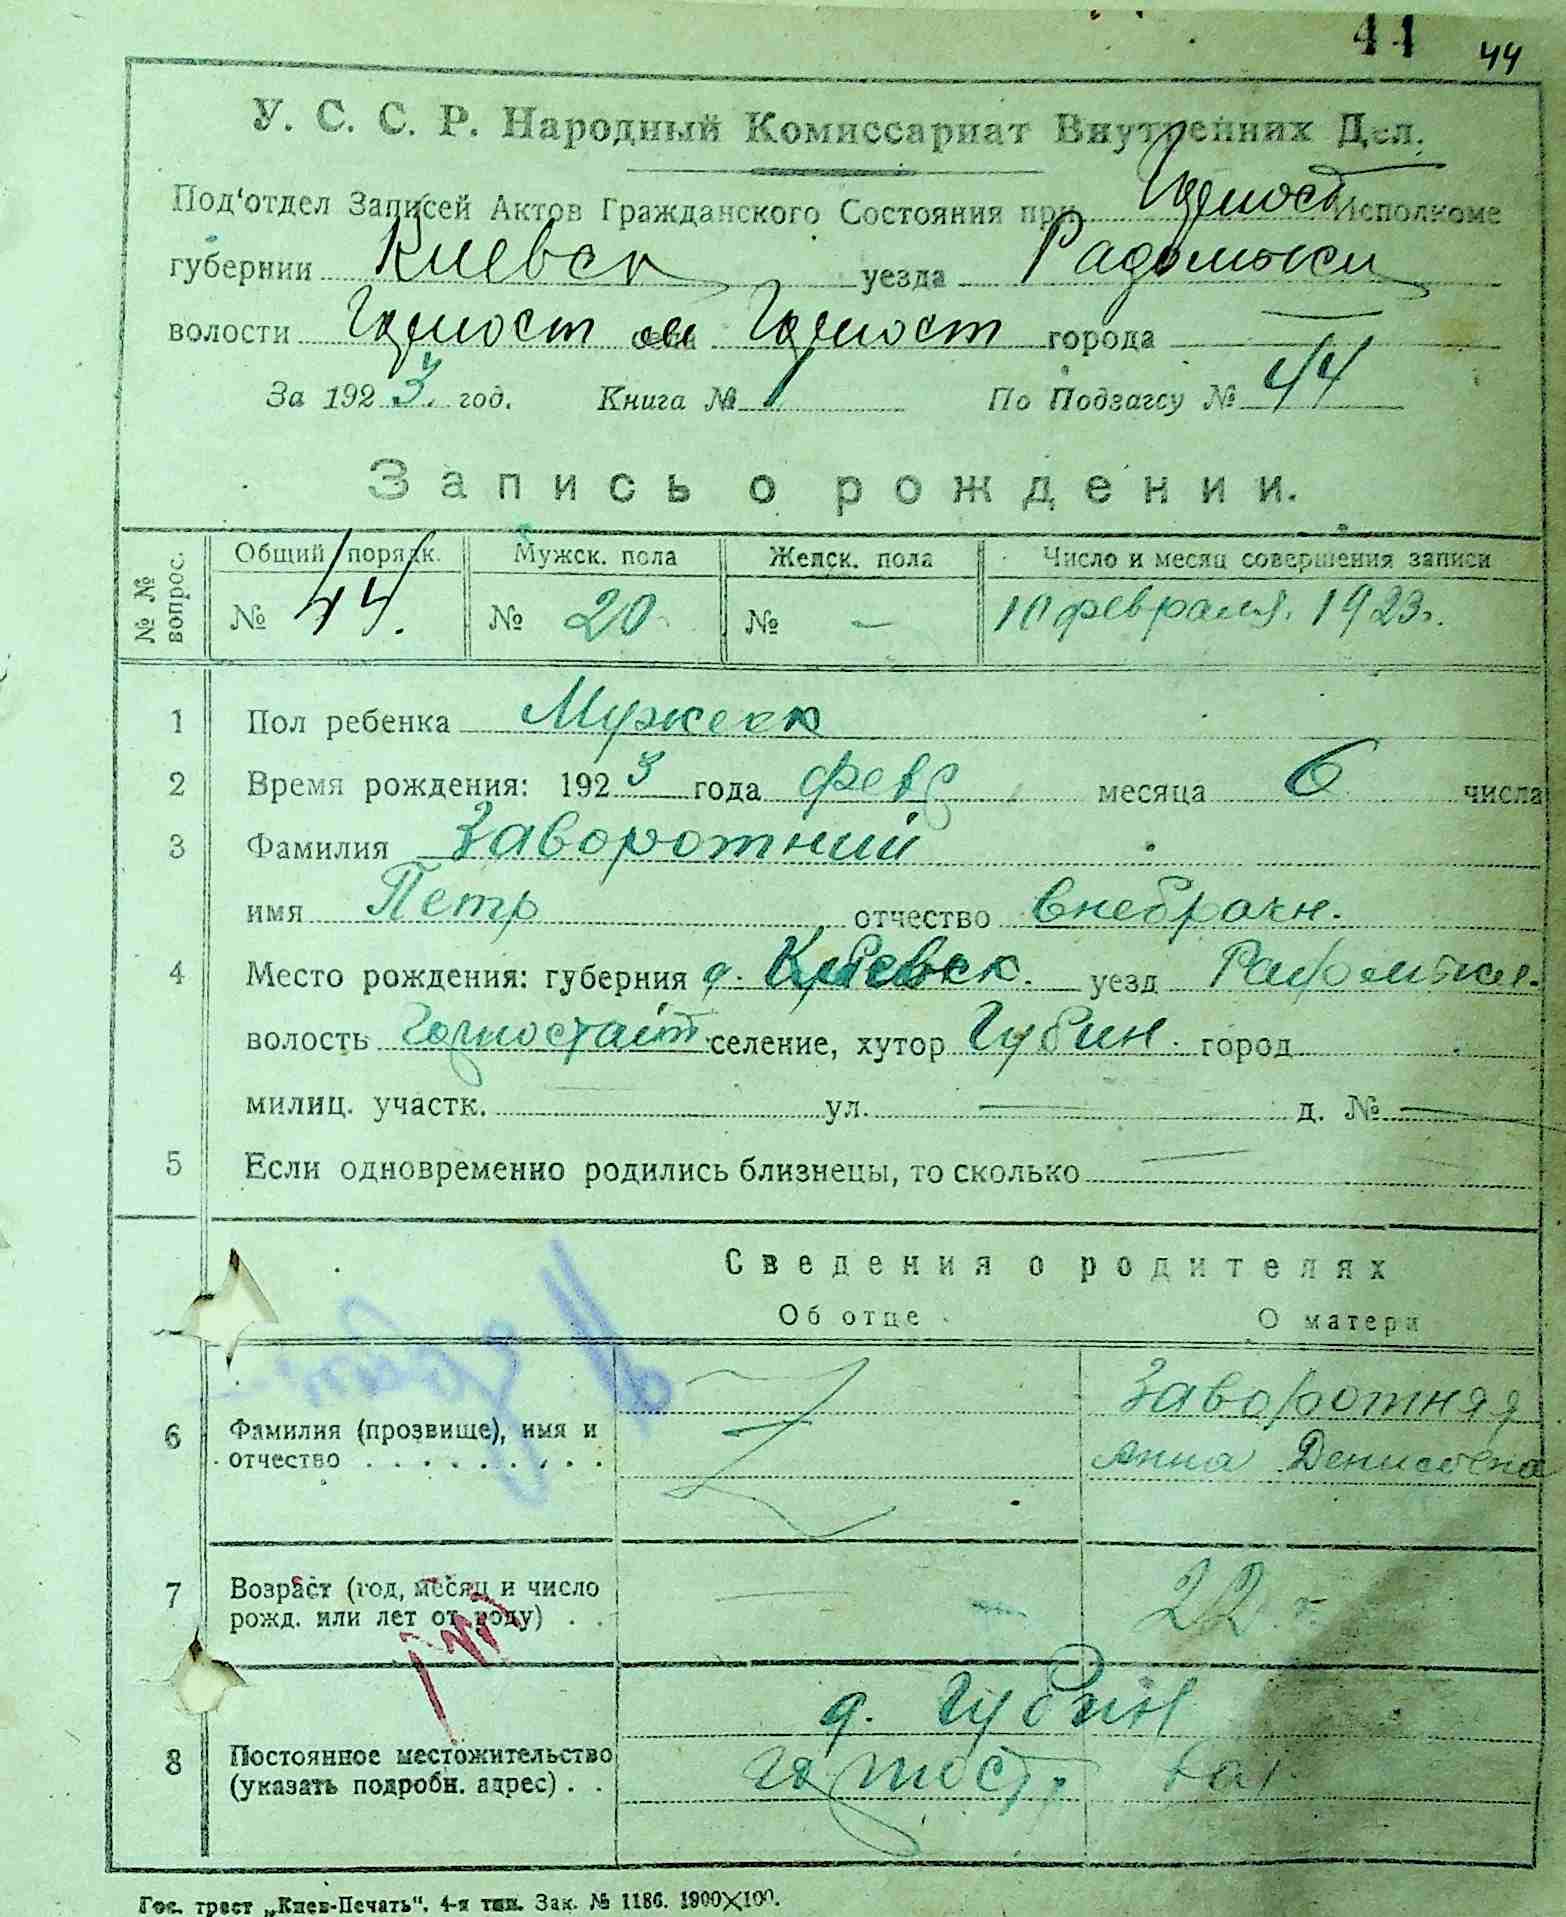 44 44
У. С. С. Р. Народный Комиссариат Внутренних Дел.
Под'отдел Записей Актов Гражданского Состояния при Горност Исполкоме
губернии Киевск уезда Радомысл
волости Горност села Горност города —
За 1923 год. Книга № 1 По Подзагсу № 44
Запись о рождении.
№ № вопрос. Общий порядк. Мужск. пола Женск. пола Число и месяц совершения записи
№ 44. № 20 № — 10 февраля. 1923г.
1 Пол ребенка Мужеск
2 Время рождения: 1923 года февр месяца 6 числа
3 Фамилия Заворотний
имя Петр отчество внебрачн.
4 Место рождения: губерния Киевск. уезд Радомысл.
волость Горностайп. селение, хутор Губин. город
милиц. участк. — ул. — д. № —
5 Если одновременно родились близнецы, то сколько —
Сведения о родителях
Об отце О матери
6 Фамилия (прозвище), имя и отчество . . . . . . . . . Заворотняя
Анна Денисовна
7 Возраст (год, месяц и число рожд. или лет от роду) . . — 22 г.
8 Постоянное местожительство (указать подробн. адрес) . . д. Губин
Горност. вол.
Гос. трест „Киев-Печать". 4-я тип. Зак. № 1186. 1900×100.